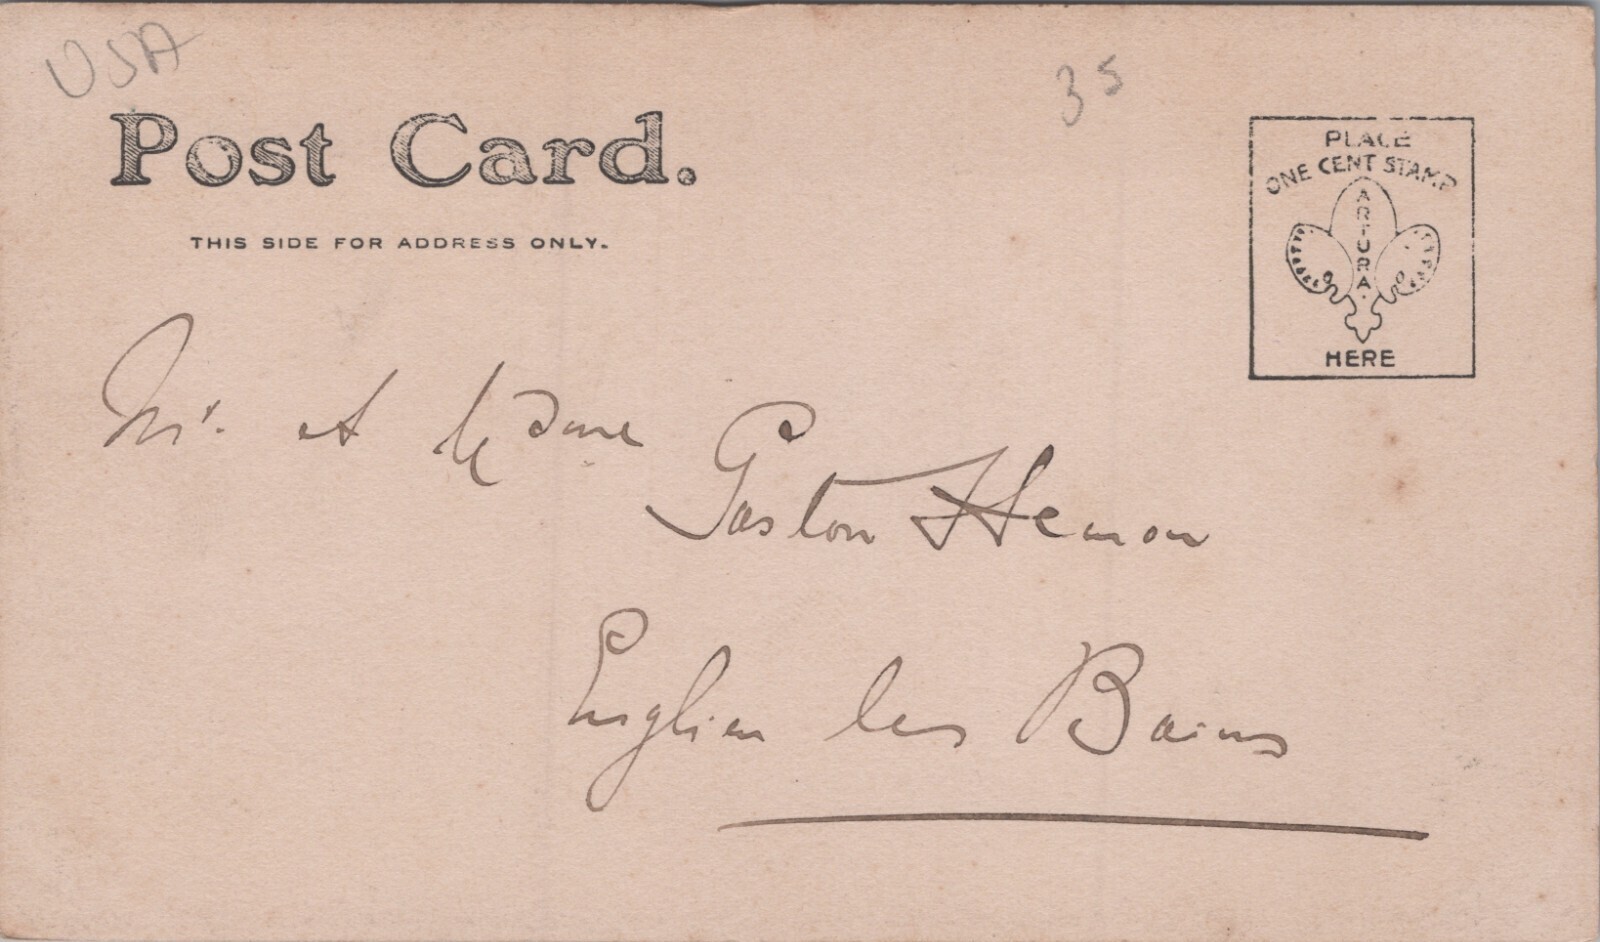 USA
35
Post Card.
THIS SIDE FOR ADDRESS ONLY.
PLACE
ONE CENT STAMP
ARTURA
HERE
Mr. et
Gaston Hemon
Enghien les Bains